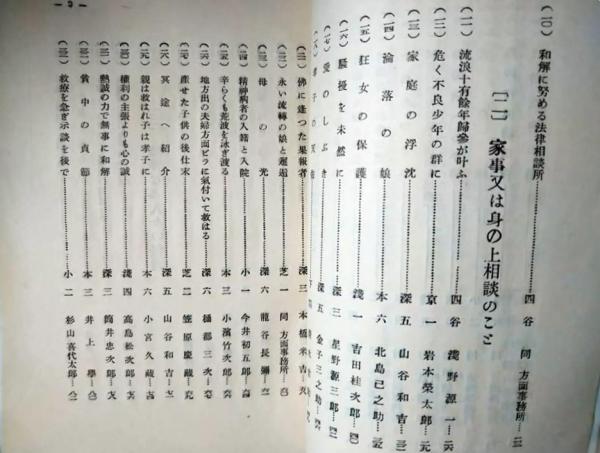 (一〇) 和解に努める法律相談所……四谷 同 方面事務所…二三
〔二〕 家事又は身の上相談のこと
(一一) 流浪十有餘年歸參が叶ふ……四谷 淺野源一…二六
(一二) 危く不良少年の群に……京一 岩本榮太郎…元
(一三) 家庭の浮沈……深五 山谷和吉…三
(一四) 淪落の娘……本六 北島己之助…三五
(一五) 狂女の保護……淺一 吉田桂次郎…四
(一六) 騷擾を未然に……深三 星野源三郎…四
(一七) 愛のしぶき……深五 金子三之助…
(二一) 佛に逢つた果報者……深三 本橋米吉…
(二二) 永い流轉の娘と邂逅……芝一 同 方面事務所…
(二三) 母の光……深六 龍谷長彌…
(二四) 精神病者の入籍と入院……小一 今井初五郎…
(二五) 辛らくも荒波を泳ぎ渡る……本三 小濱竹次郎…
(二六) 地方出の夫婦方面ビラに氣付いて救はる……深六 樋都三次…
(二七) 產せた子供の後仕末……芝二 笠原慶藏…
(二八) 冥途へ紹介……深五 山谷和吉…
(二九) 親は救はれ子は孝子に……本六 小宮久藏…
(三〇) 權利の主張よりも心の誠……淺四 高島松次郎…
(三一) 熱誠の力で無事に和解……深三 筒井忠次郎…
(三二) 貧中の貞節……本三 井上學…
(三三) 救療を急ぎ示談を後で……小二 杉山喜代太郎…